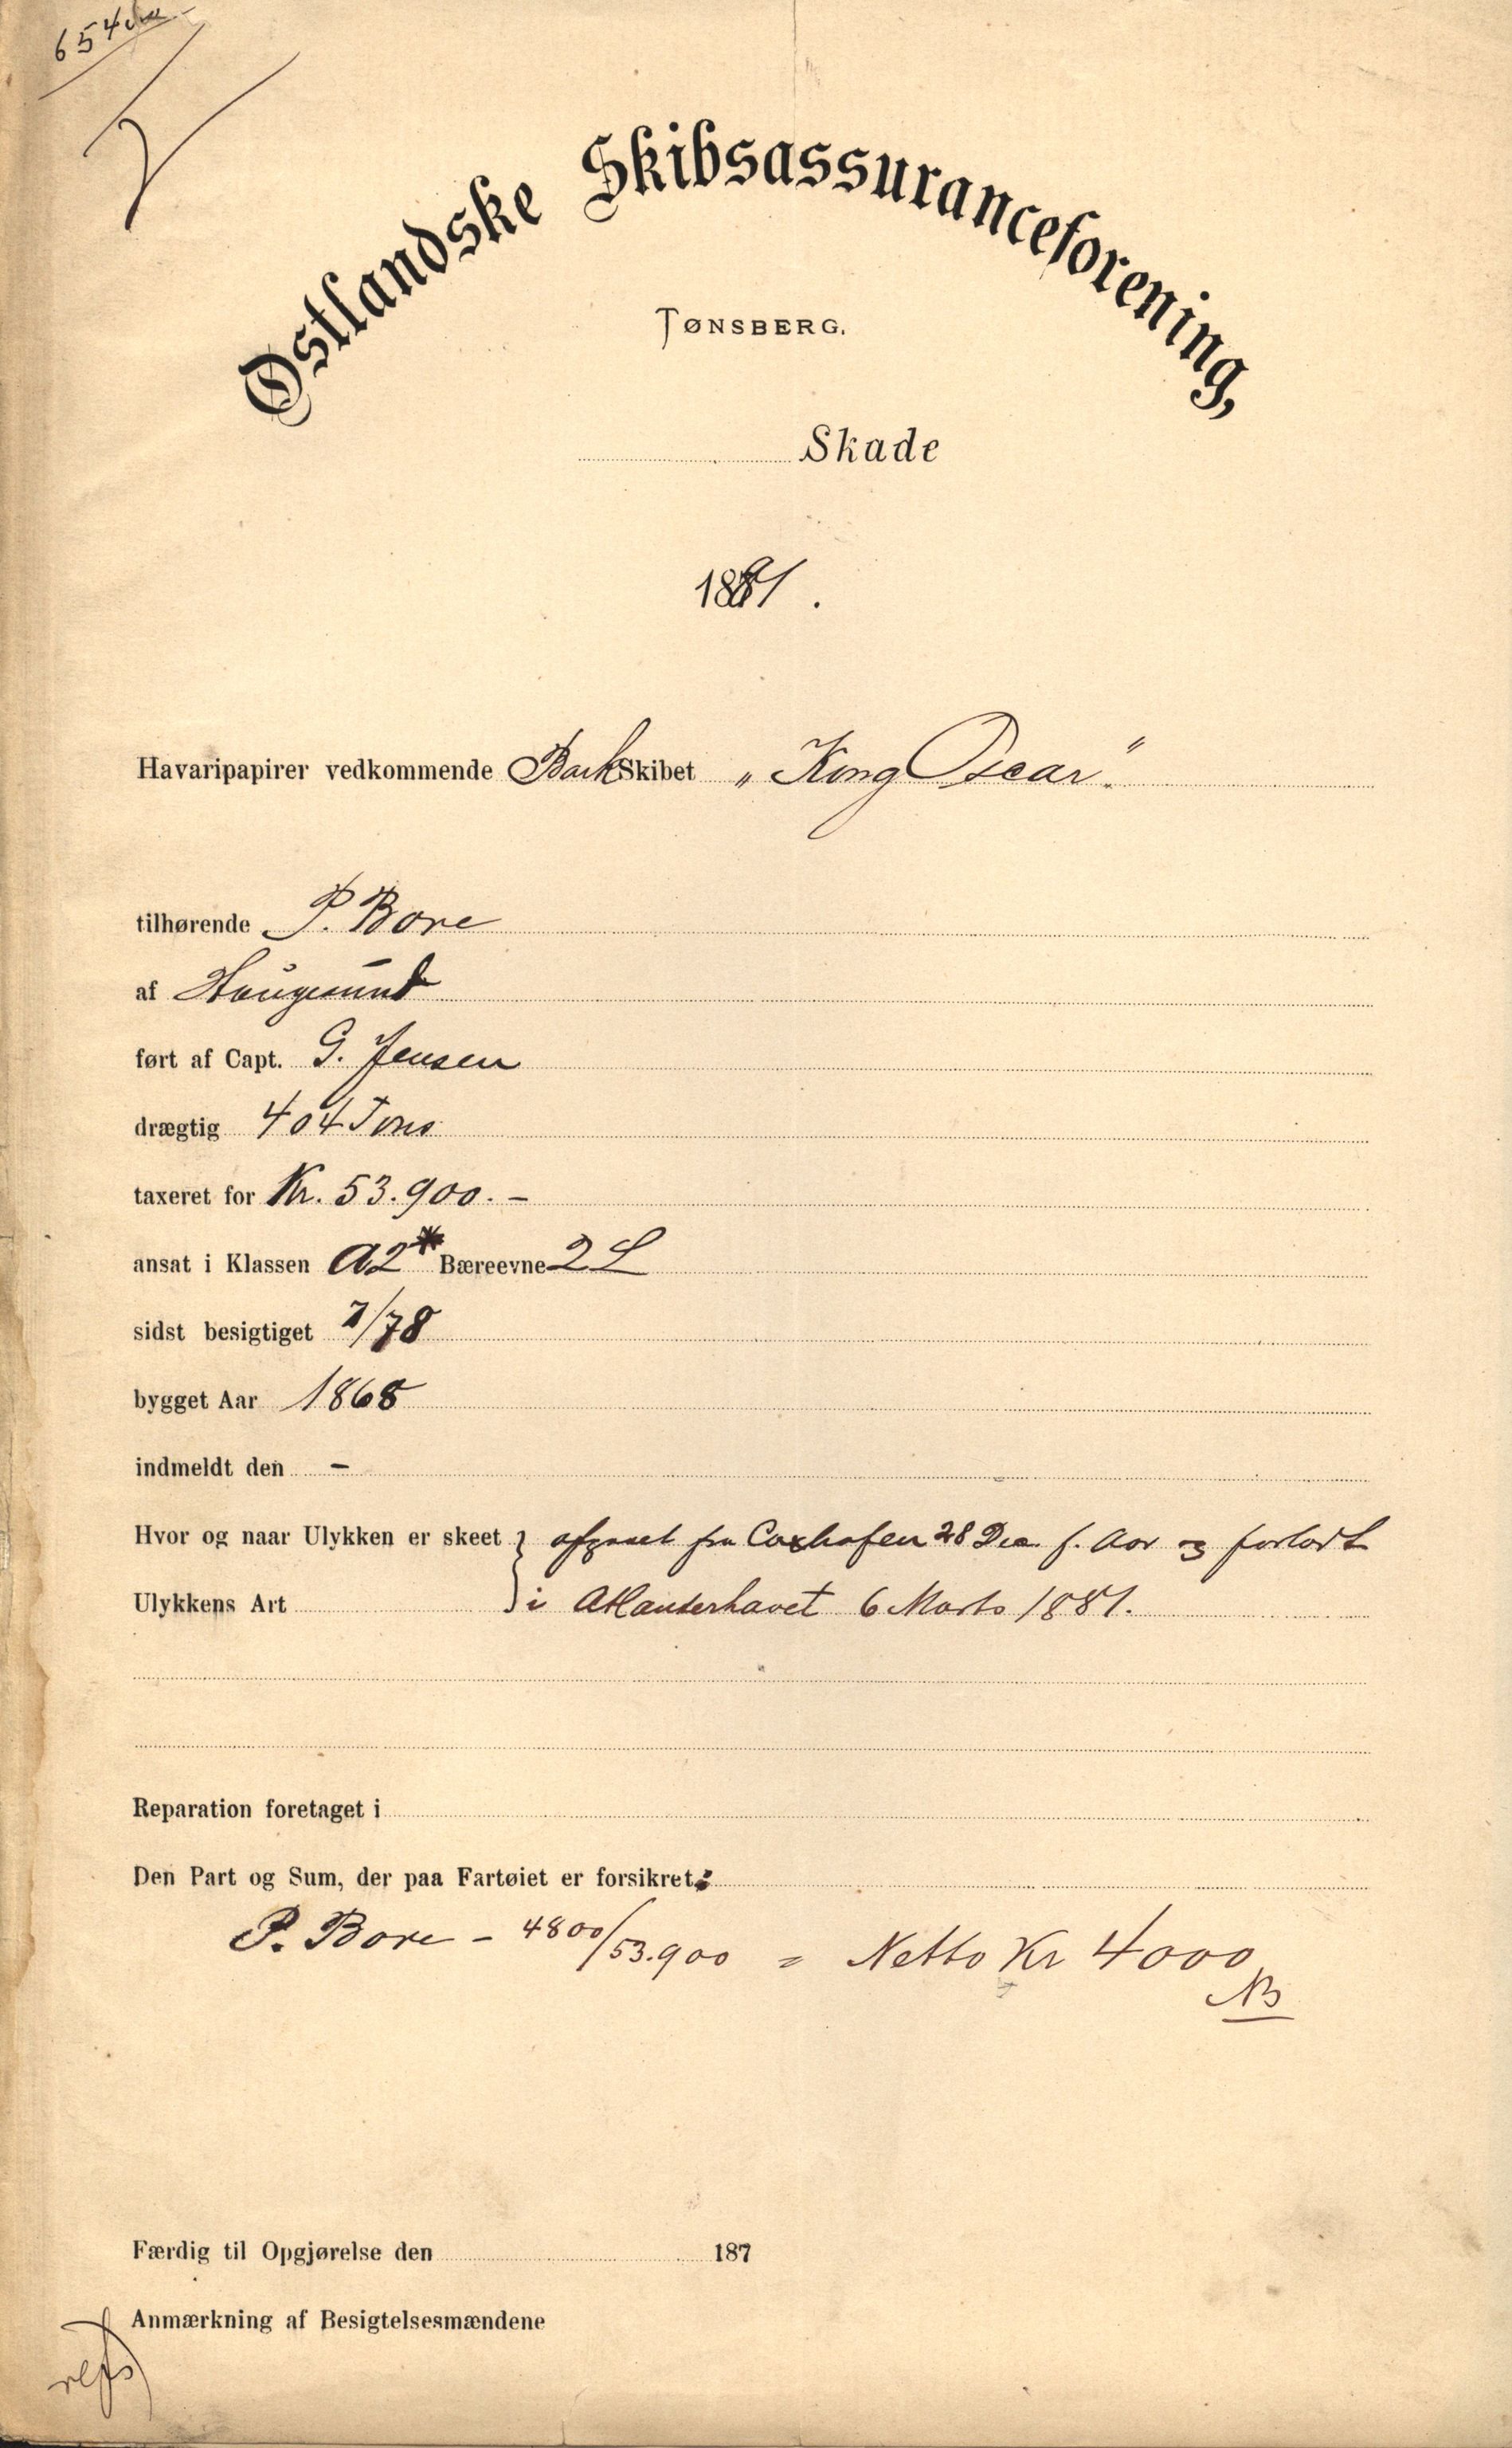 Østlandske Skibsassuranceforening,
TØNSBERG.
Skade
1881.
Havaripapirer vedkommende Bark Skibet „Kong Oscar"
tilhørende P. Bore
af Haugesund
ført af Capt. G. Jensen
drægtig 404 Tons
taxeret for Kr. 53.900.-
ansat i Klassen A2* Bæreevne 2 L
sidst besigtiget 7/78
bygget Aar 1868
indmeldt den -
Hvor og naar Ulykken er skeet } afgaaet fra Coxhafen 28 Dec f. Aar og forladt
Ulykkens Art i Atlanterhavet 6 Marts 1881.
Reparation foretaget i
Den Part og Sum, der paa Fartøiet er forsikret:
P. Bore - 4800/53.900 = Netto Kr 4000
NB
Færdig til Opgjørelse den 187
Anmærkning af Besigtelsesmændene